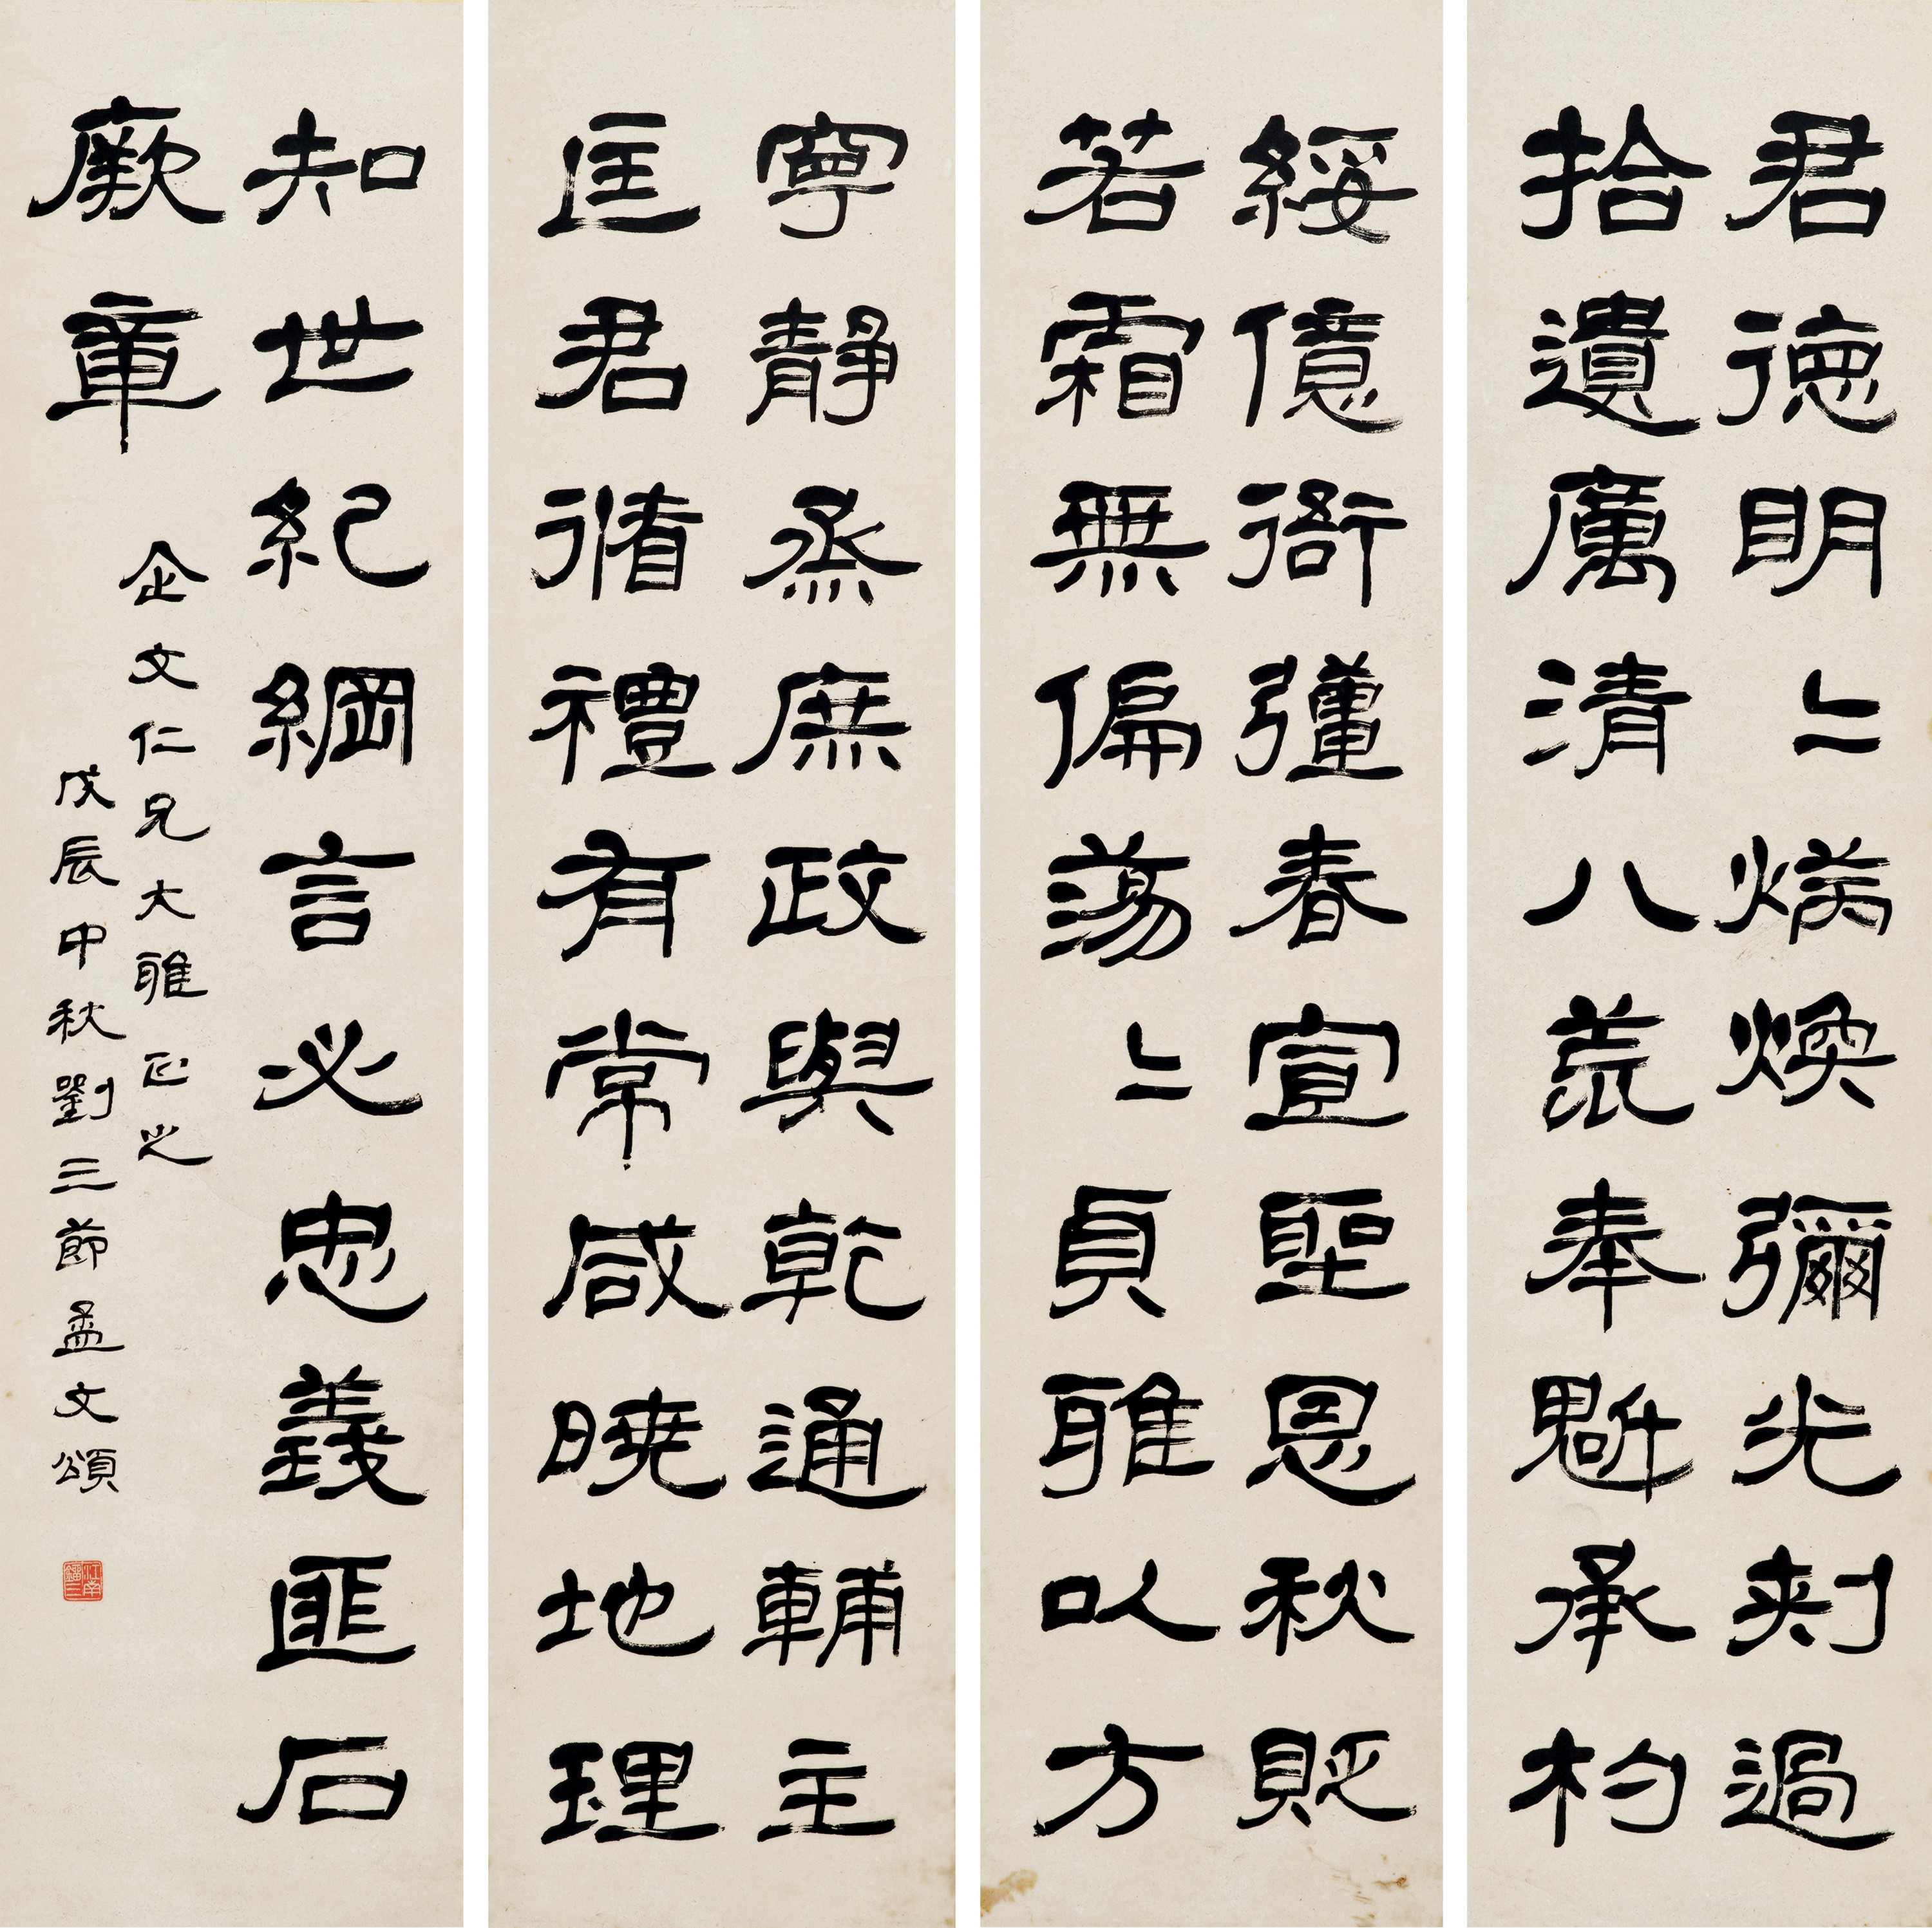 君德明二煥煥彌光刺過
拾遺厲清八荒奉魁承杓
綏億衙彊春宣聖恩秋貶
若霜無偏蕩二貞雅以方
寧靜烝庶政與乾通輔主
匡君循禮有常咸曉地理
知世紀綱言必忠義匪石
厥章
企文仁兄大雅正之
戊辰中秋劉三節孟文頌
江南劉三